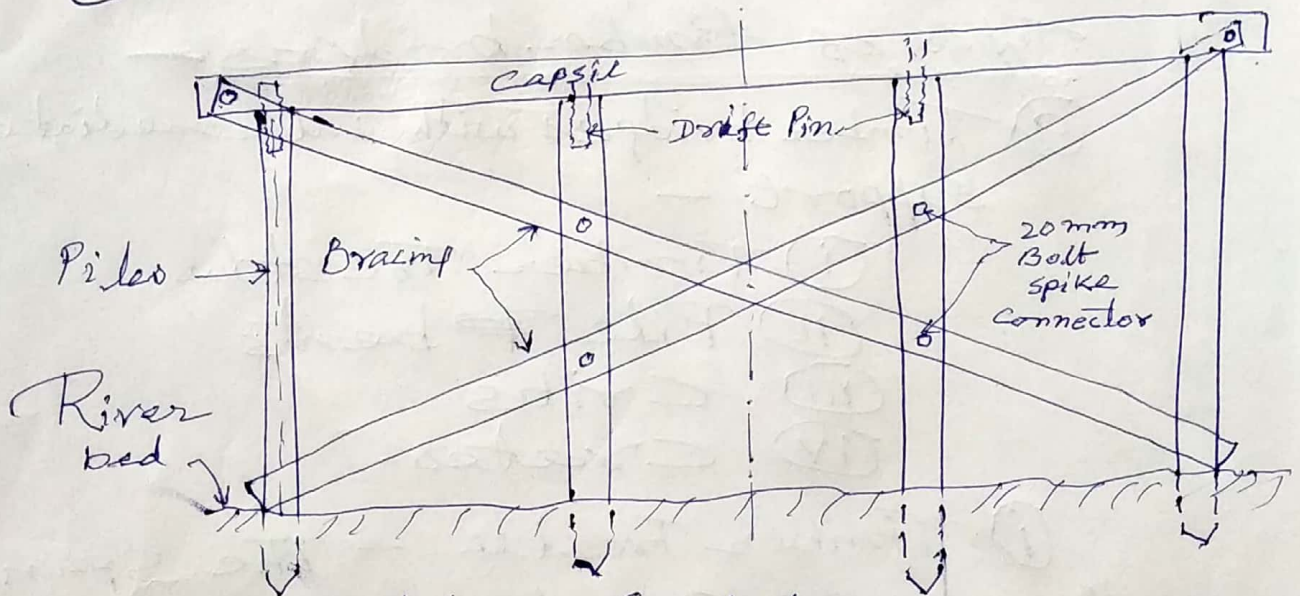 Capsil
Drift Pin
Piles
Bracing
20mm
Bolt
spike
Connector
River
bed